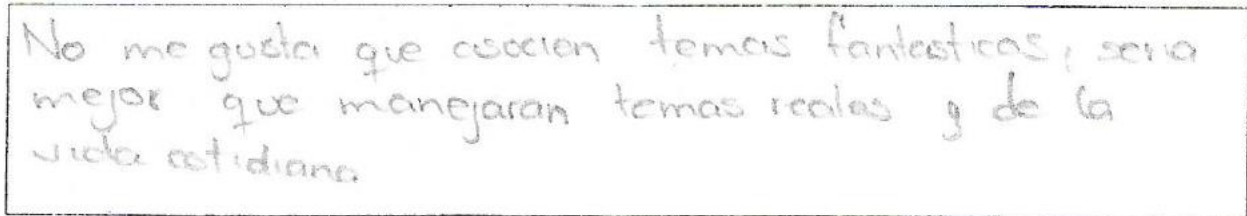 No me gusta que asocien temas fantasticos, seria
mejor que manejaran temas reales y de la
vida cotidiana